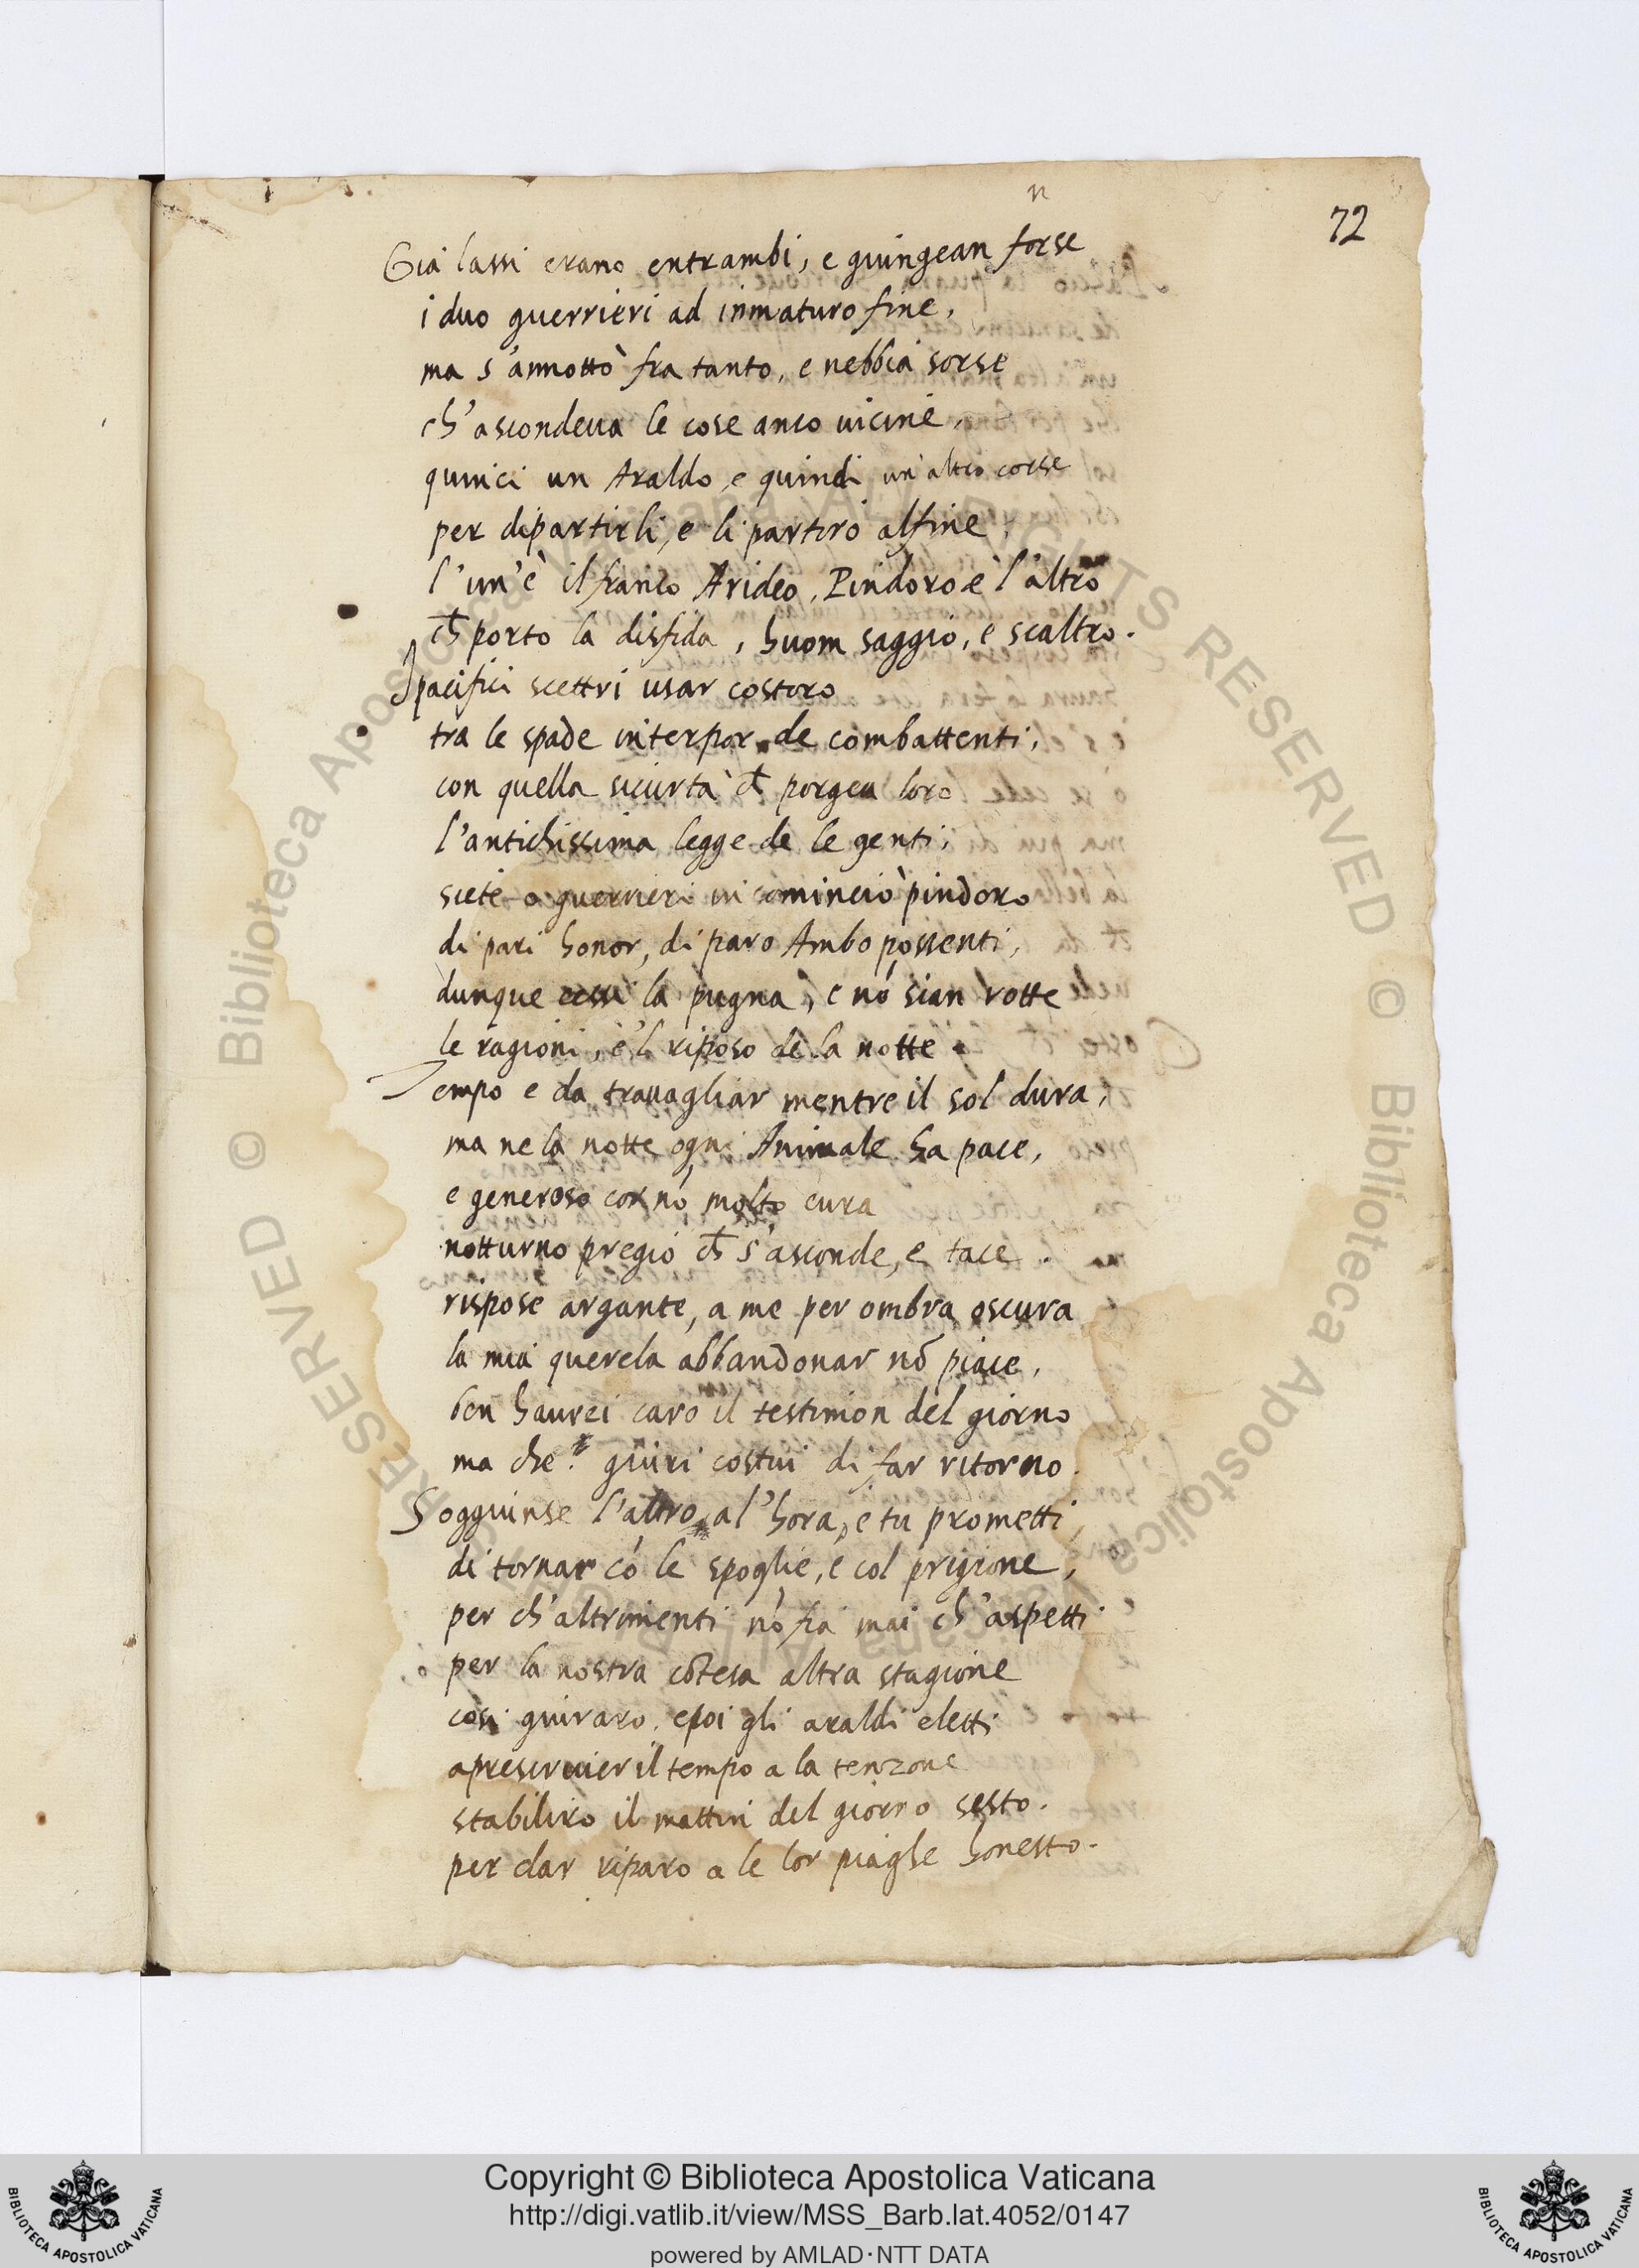 n
72
Già lassi erano entrambi, e giungean forse
i duo guerrieri ad inmaturo fine,
ma s'annottò fra tanto, e nebbia sorse
ch'ascondeua le cose anco uicine,
quinci un Araldo, e quindi un'altro corse
per dipartirli, e li partiro alfine,
l'un'è il franco Arideo, Pindoro è l'altro
ch̄ porto la disfida, huom saggio, e scaltro.
I pacifici scettri usar costoro
tra le spade interpor de combattenti,
con quella sicurtà ch̄ porgea loro
l'antichissima legge de le genti,
siete o guerrieri incominciò pindoro
di pari honor, di paro Ambo possenti,
dunque cessi la pugna, e nó sian rotte
le ragioni, e'l riposo de la notte.
Tempo e da trauagliar mentre il sol dura,
ma ne la notte ogni Animale ha pace,
e generoso cor nó molto cura
notturno pregio ch̄ s'asconde, e tace.
rispose argante, a me per ombra oscura
la mia querela abbandonar nō piace,
ben haurei caro il testimon del giorno
ma che? giuri costui di far ritorno.
Soggiunse l'altro al'hora, e tu prometti
di tornar có le spoglie, e col prigione,
per ch'altrimenti nó fia mai ch'aspetti
per la nostra cōtesa altra stagione
cosi giuraro, e poi gli araldi eletti
a prescriuier il tempo a la tenzone
stabiliro il mattin del giorno sesto.
per dar riparo a le lor piaghe honesto.
Copyright © Biblioteca Apostolica Vaticana
http://digi.vatlib.it/view/MSS_Barb.lat.4052/0147
powered by AMLAD·NTT DATA
BIBLIOTECA APOSTOLICA VATICANA
BIBLIOTECA APOSTOLICA VATICANA